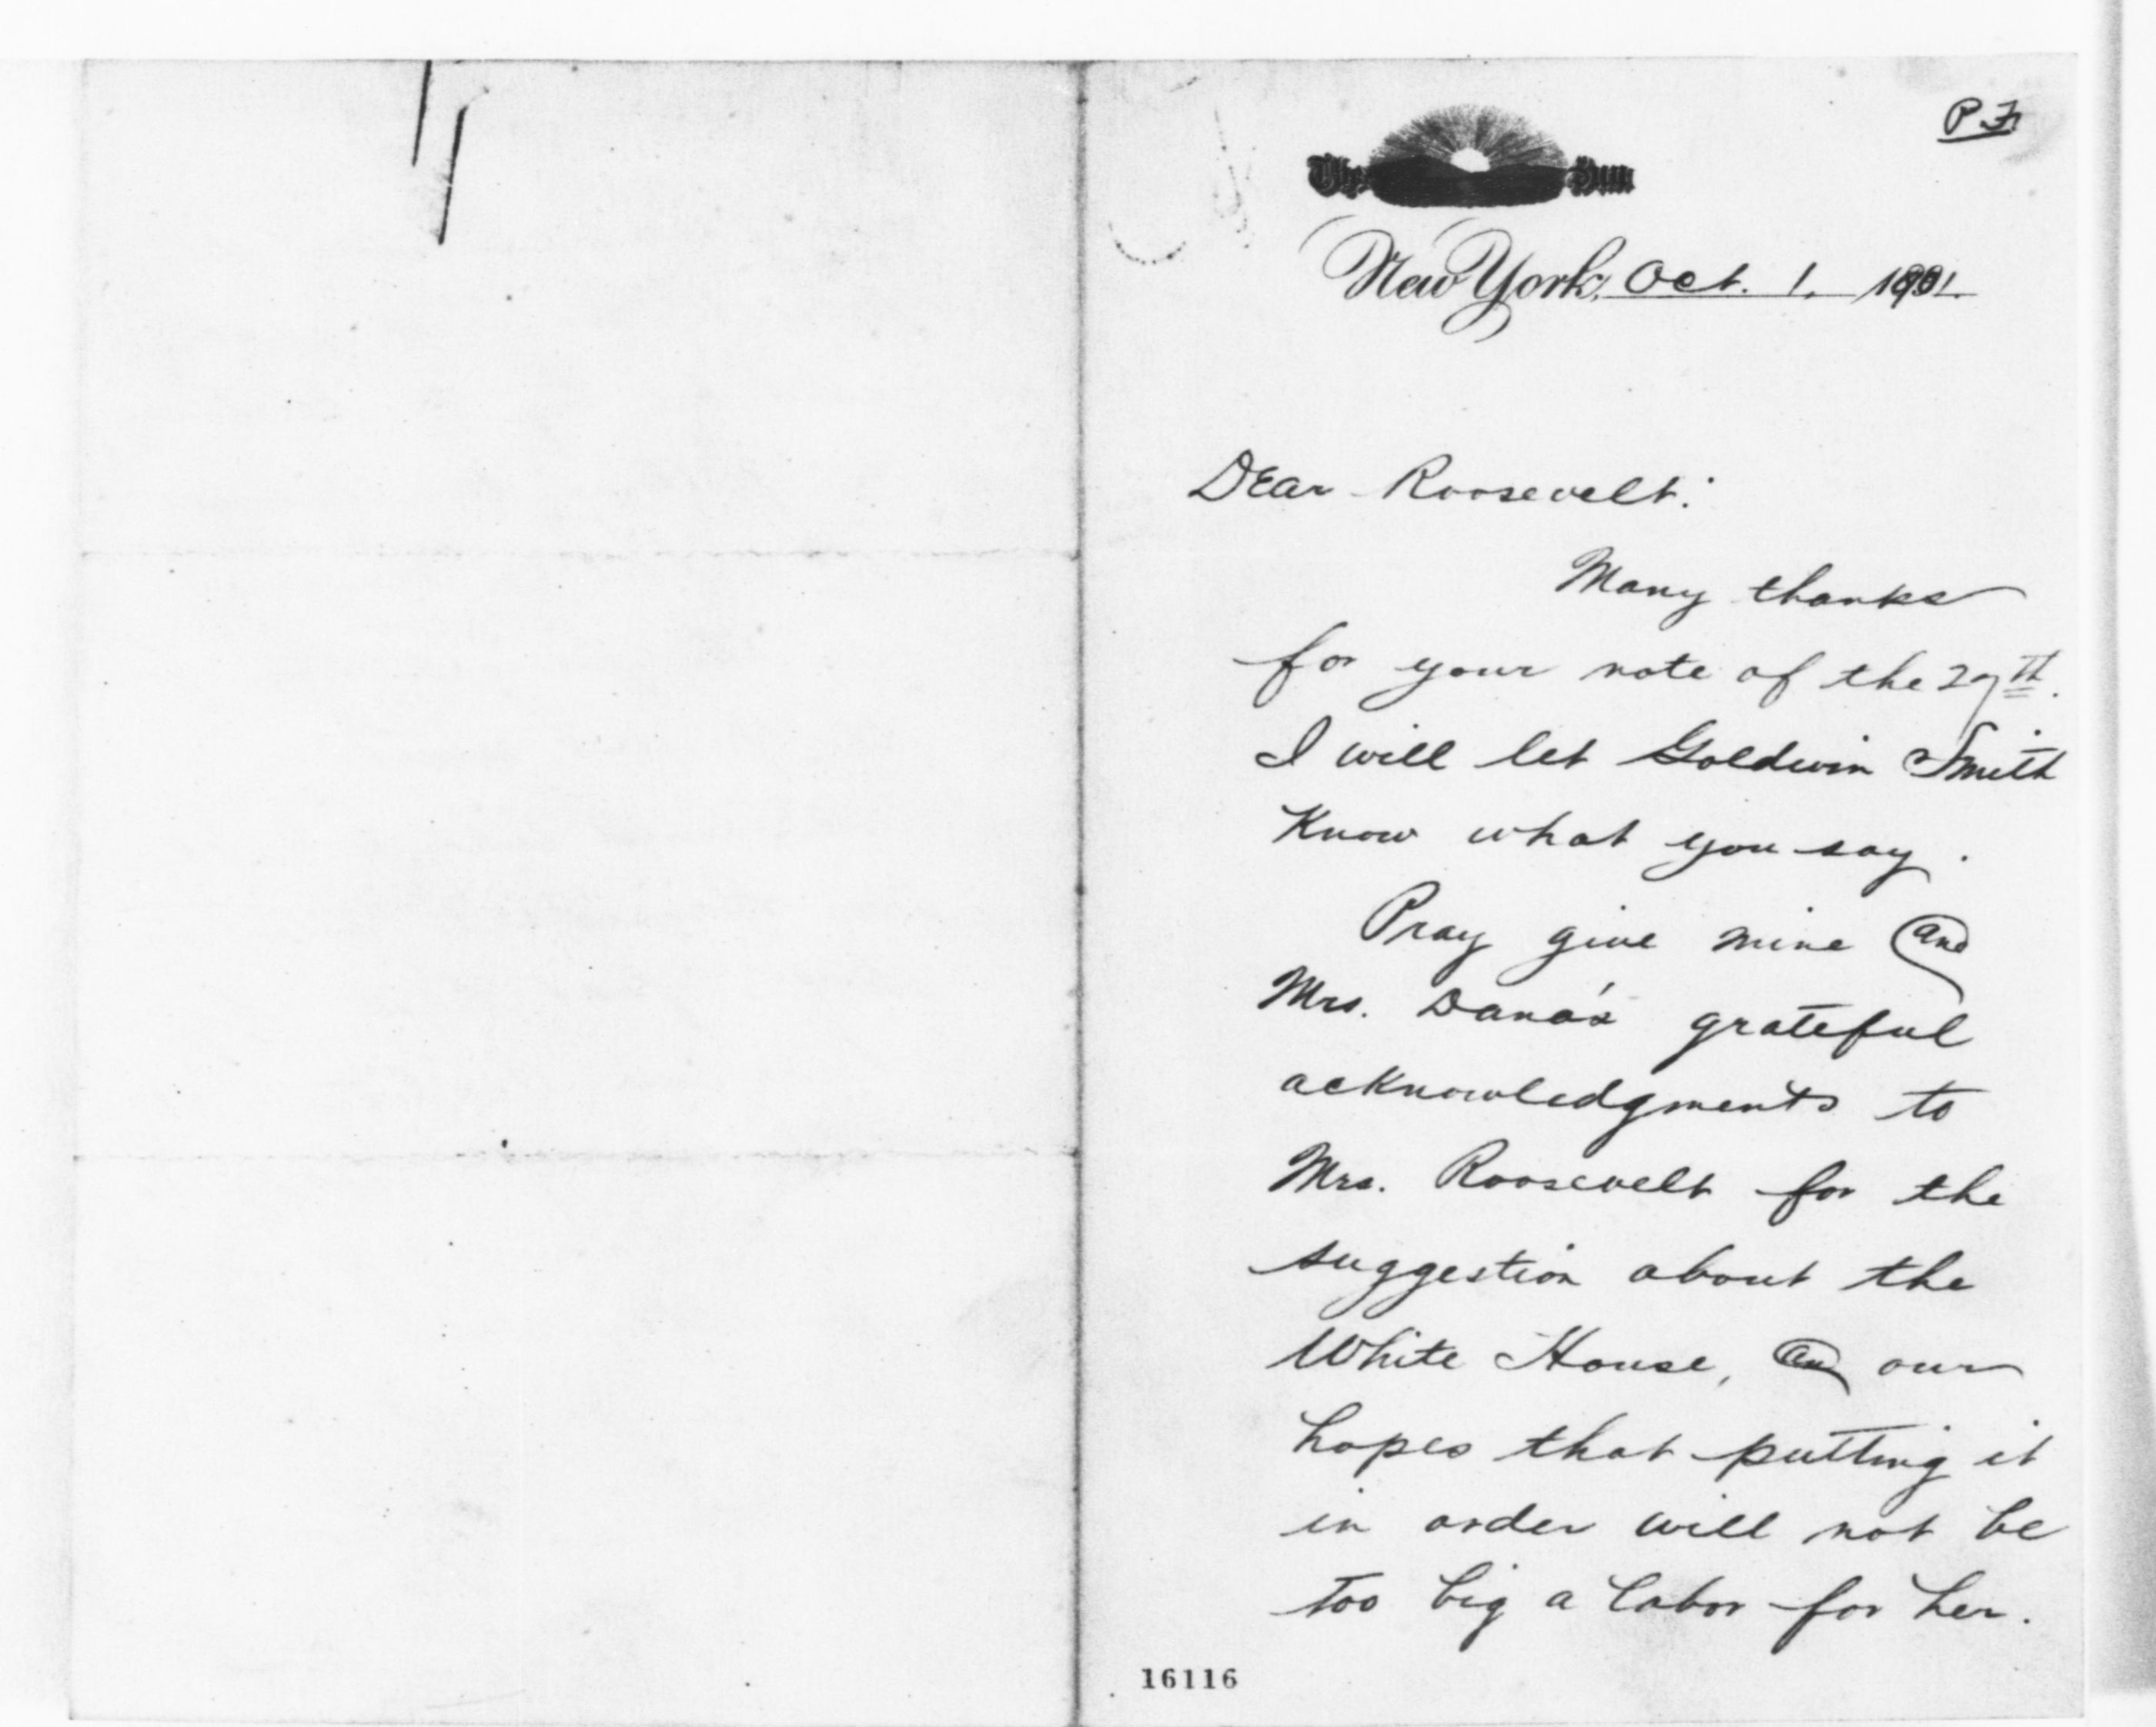 P.F.
The Sun
New York, Oct. 1. 1901.
Dear Roosevelt:
Many thanks
for your note of the 29th.
I will let Goldwin Smith
know what you say.
Pray give mine and
Mrs. Dana's grateful
acknowledgments to
Mrs. Roosevelt for the
suggestion about the
White House, and our
hopes that putting it
in order will not be
too big a labor for her.
16116